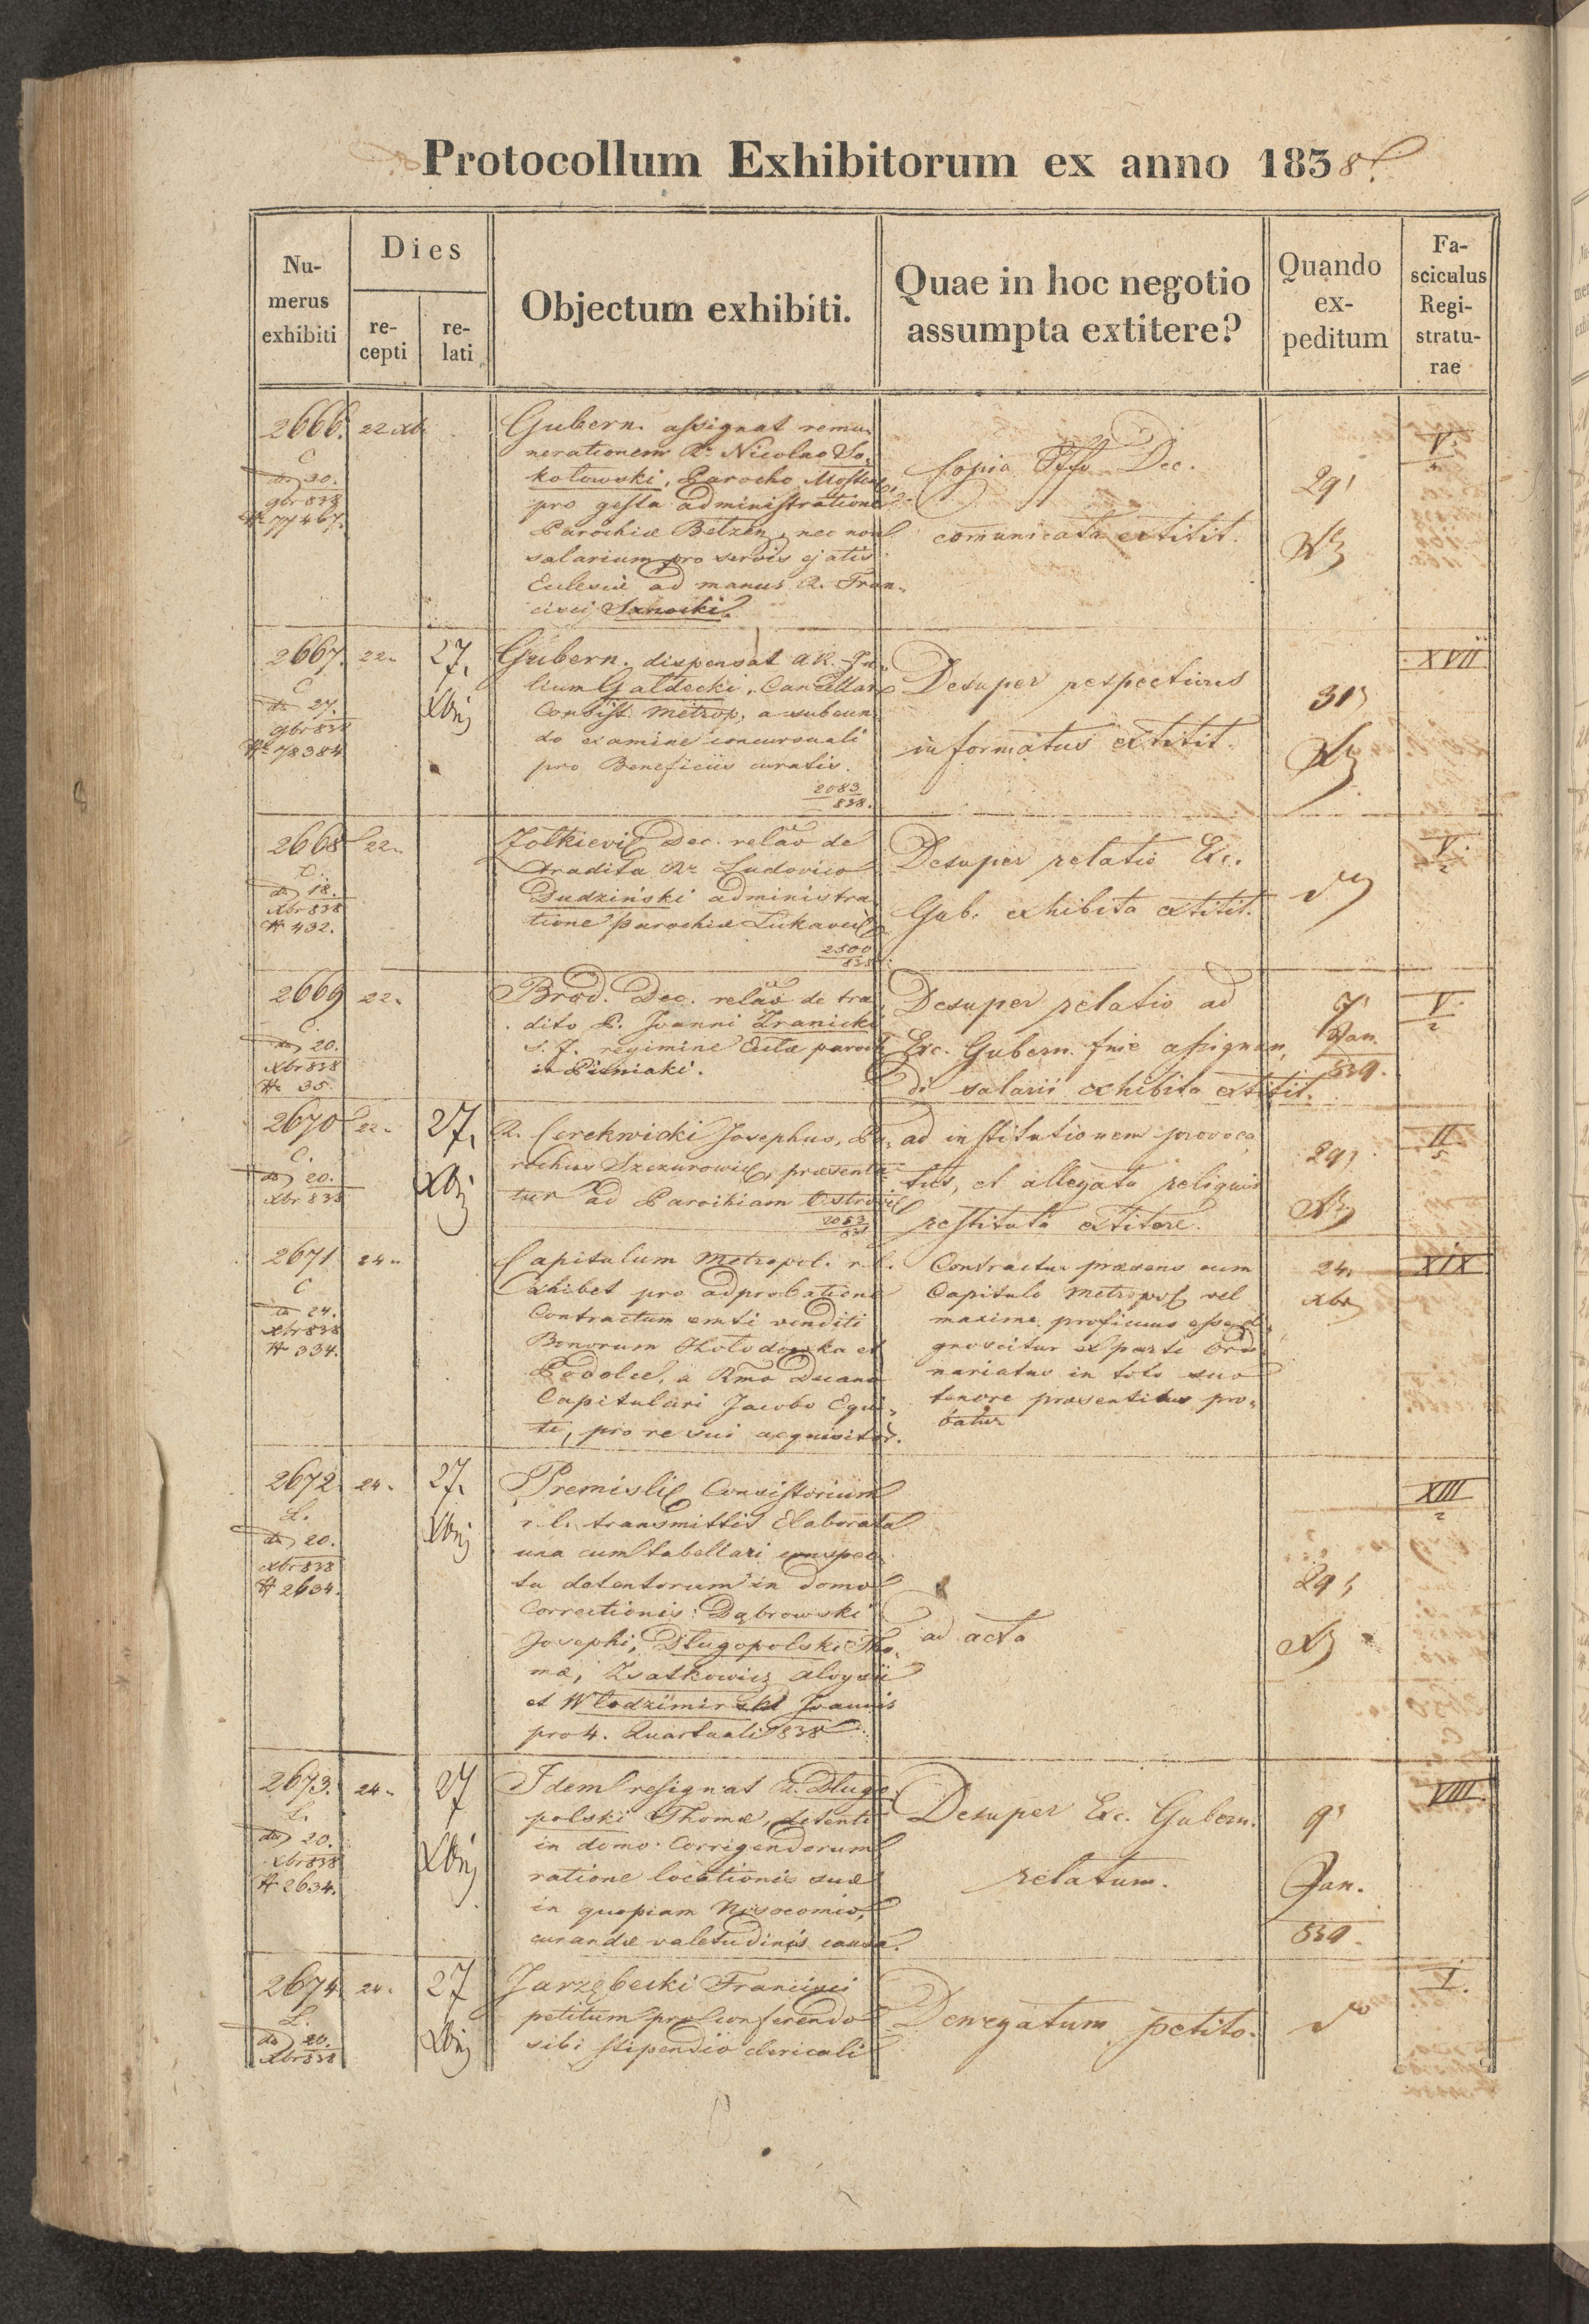 Protocollum Exhibitorum ex anno 1838.
Numerus exhibiti
Dies
recepti
relati
Objectum exhibiti.
Quae in hoc negotio assumpta extitere?
Quando expeditum
Fasciculus Registraturae
2666. 22 xb.
C
dto 30.
9br 838
77467.
Gubern. assignat remu-
nerationem R. Nicolao So-
kołowski, Parocho
pro gesta administratione
Parochiæ Betzen, nec non
salarium pro servis ejatis
Ecclesiæ ad manus R. Fran-
cisci
Copia Dec.
comunicata extitit.
29
V
2667. 22. 27.
C
dto 27.
9br 838
78384
Gubern. dispensat AR. Ju-
lium Gałdecki, Cancellar
Consist. Metrop. a subeun-
do examine concursuali
pro Beneficiis curatis.
2083
838.
Desuper respectivus
informatus extitit.
31
XVII
2668 22.
dto 18.
xbr 838
432.
Zołkievi Dec. relao de
tradita Rr Ludovico
Dudziński administra-
tione parochiæ Lukavec
2500
838
Desuper relatio Exc.
Gub. exhibita extitit.
V.
2
2669 22.
C.
dto 20.
xbr 838
35.
Brod. Dec. relao de tra-
dito P. Joanni Zranicki
s. J. regimine Eccla paroch
in Pieniaki.
Desuper relatio ad
Exc. Gubern. fine assignan-
di salarii exhibita extitit.
7
Jan.
839.
V.
2
2670 22. 27.
C.
dto 20.
xbr 838
R. Cerekwicki Josephus, Pa-
rochus Szczurowic, præsenta-
tur ad Parochiam
2083
838
ad institutionem provoca-
tus, et allegata reliquis
restituta extitere.
29
II.
5
2671 24.
C
dto 24.
xbr 838
334.
Capitulum Metropol. r. l.
Exhibet pro adprobatione
Contractum emti venditi
Bonorum Hołodówka et
Podolce, a Rmo Decano
Capitulari Jacobo Equi-
te, pro re sui acquisitor.
Contractus præsens cum
Capitulo Metropol vel
maxime proficuus esse di-
gnoscitur ex parte Ordi-
nariatus in toto suo
tenore præsentibus pro-
batur
24.
xbr
XIX
2672. 24. 27.
L.
dto 20.
xbr 838
2634.
Premisli Consistorium
r. l. transmittit Elaborata
una cum tabellari conspec-
tu detentorum in domo
Correctionis: Dąbrowski
Josephi, Długopolski Tho-
mæ, Zsatkowicz Aloysii
et Włodzimirski Joannis
pro 4. Quartuali 838
ad acta
29
XIII
2
2673. 24. 27
L.
dto 20.
xbr 838
2634.
Idem resignat R. Długo-
polski Thomæ, detenti
in domo Corrigendorum
ratione locationis suæ
in quopiam Nosocomio,
curandæ valetudinis causa.
Desuper Exc. Gubern.
relatum.
9
Jan.
839.
VIII.
2674. 24. 27
L.
dto 20.
xbr 838
Jarzębecki Francisci
petitum pro conferendo
sibi stipendio clericali
Denegatum petito.
I.